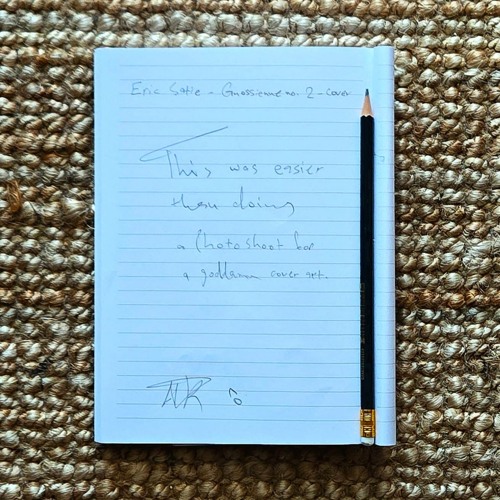 Eric Satie - Gnossienne no. 2 - cover
This was easier
then doing
a Photoshoot for
a goddamn cover art.